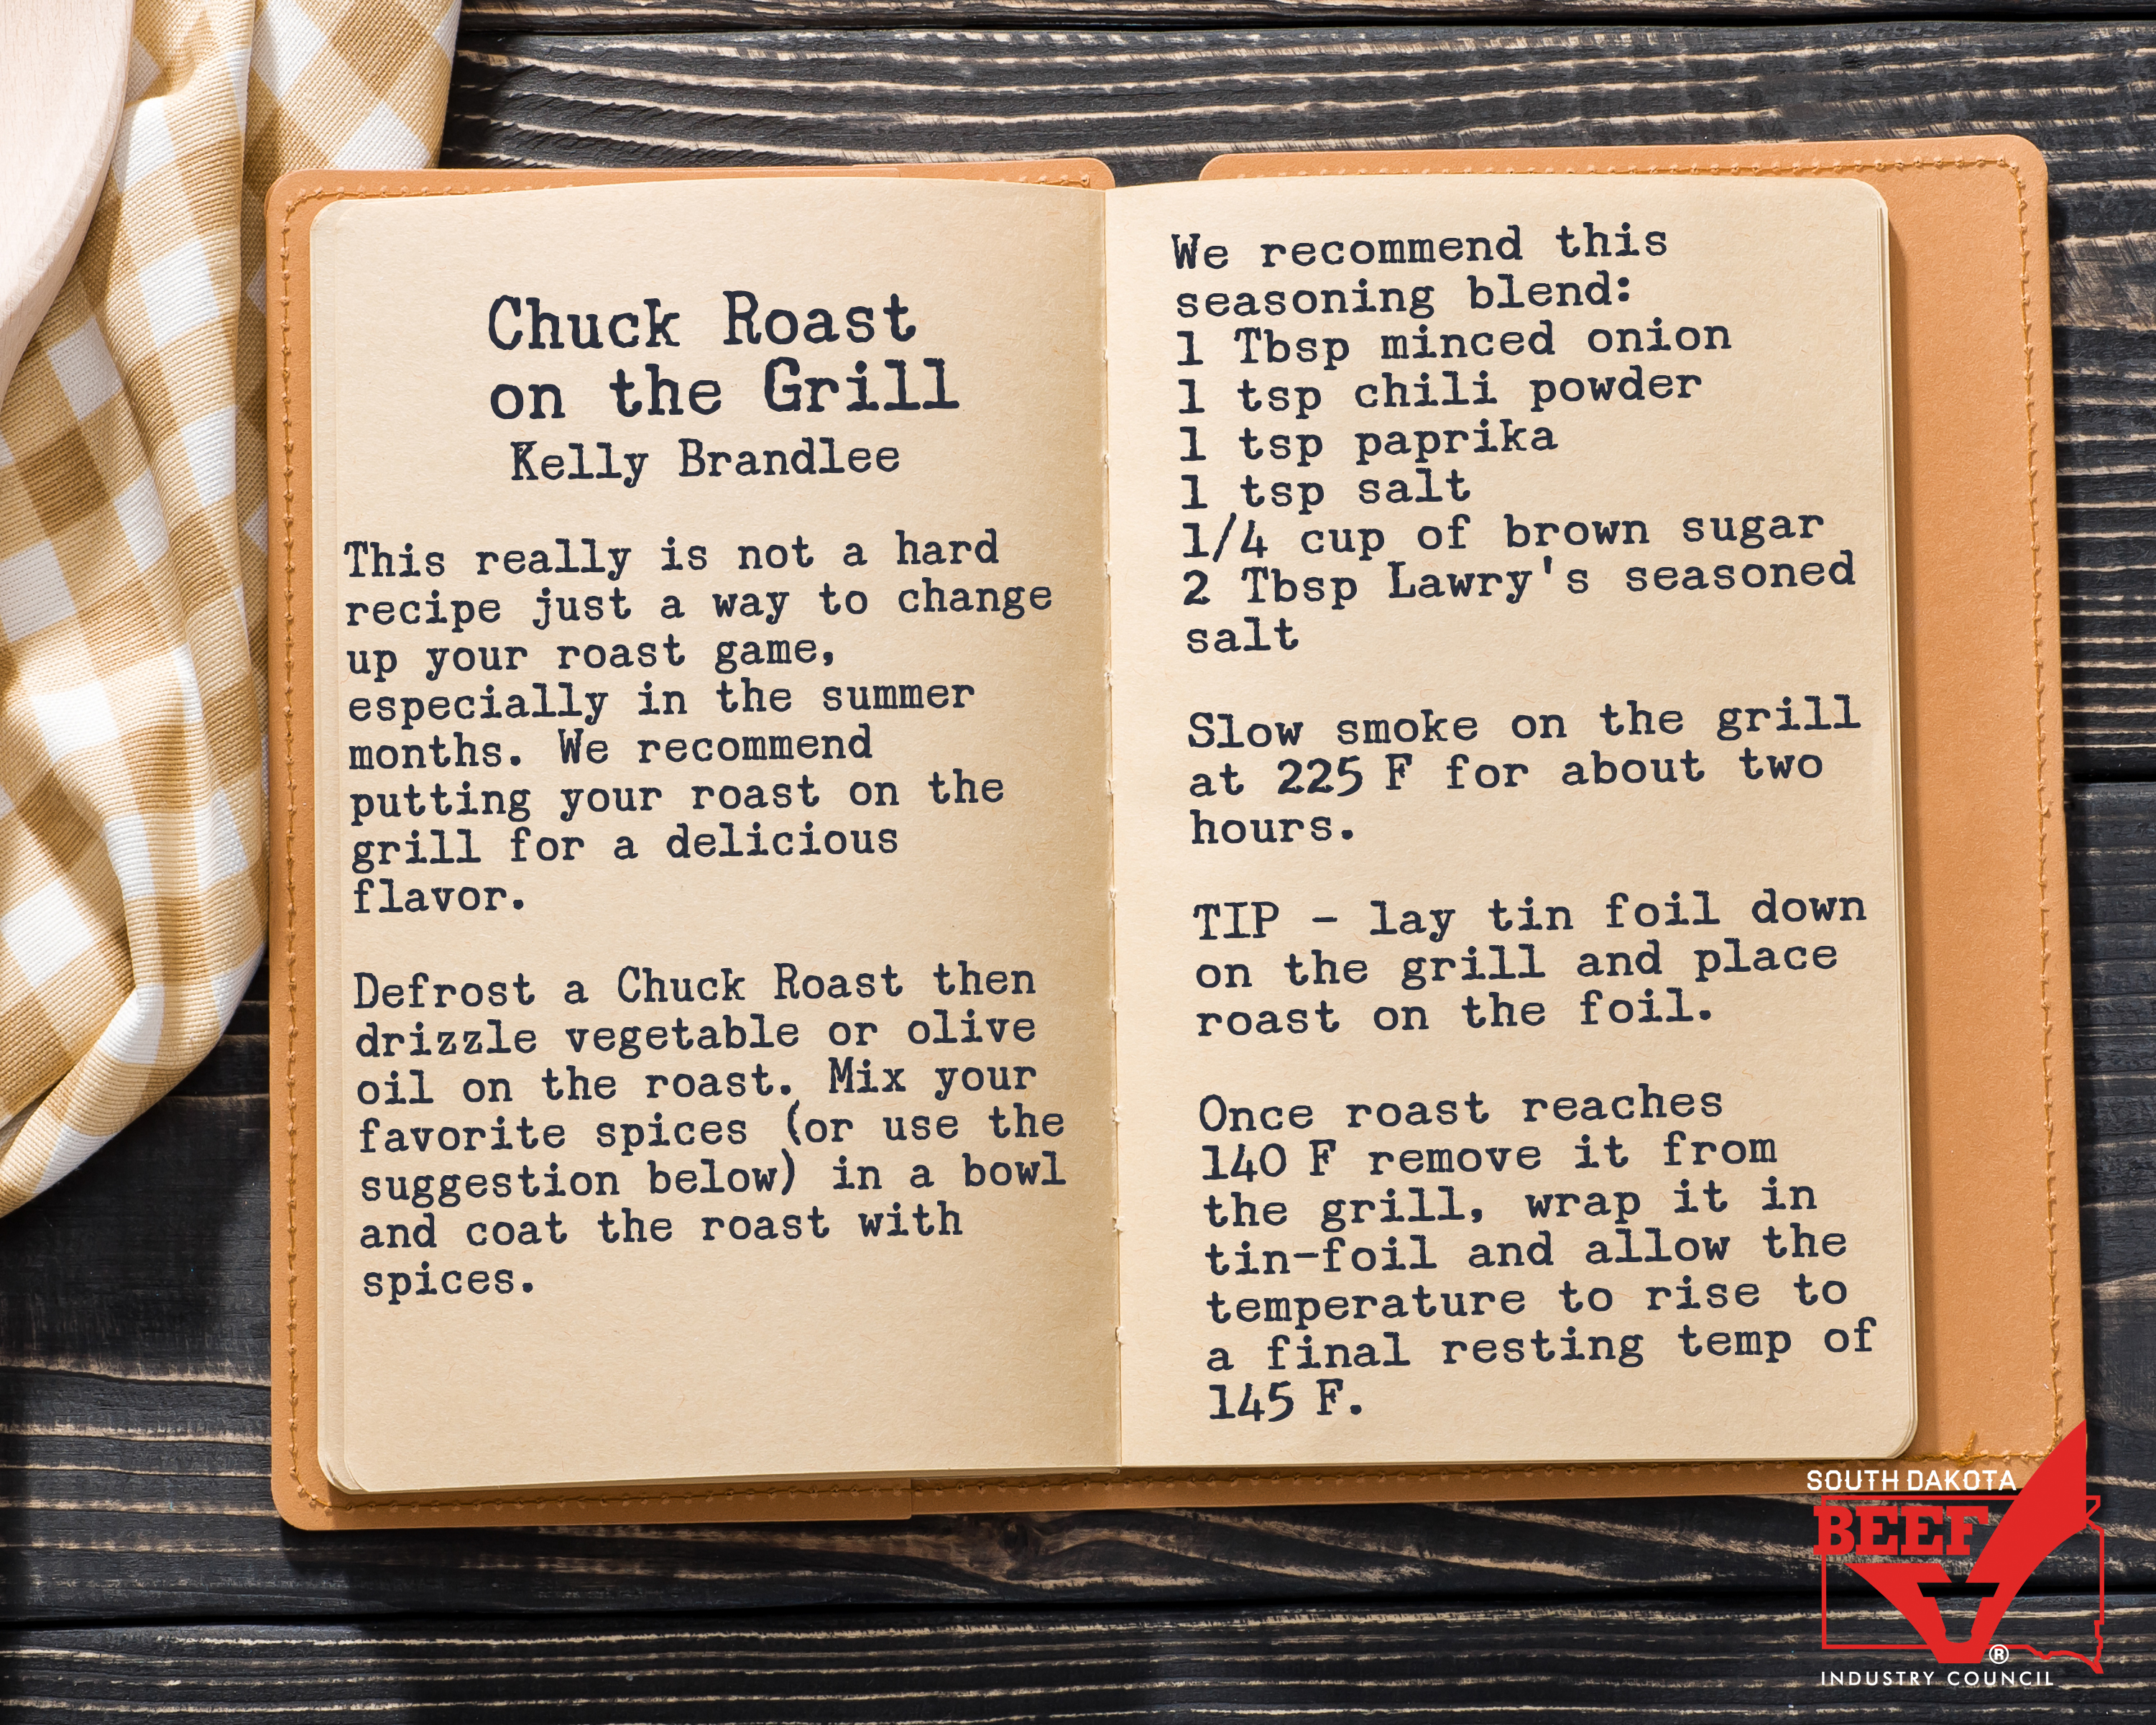 Chuck Roast
on the Grill
Kelly Brandlee
This really is not a hard
recipe just a way to change
up your roast game,
especially in the summer
months. We recommend
putting your roast on the
grill for a delicious
flavor.
Defrost a Chuck Roast then
drizzle vegetable or olive
oil on the roast. Mix your
favorite spices (or use the
suggestion below) in a bowl
and coat the roast with
spices.
We recommend this
seasoning blend:
1 Tbsp minced onion
1 tsp chili powder
1 tsp paprika
1 tsp salt
1/4 cup of brown sugar
2 Tbsp Lawry's seasoned
salt
Slow smoke on the grill
at 225 F for about two
hours.
TIP - lay tin foil down
on the grill and place
roast on the foil.
Once roast reaches
140 F remove it from
the grill, wrap it in
tin-foil and allow the
temperature to rise to
a final resting temp of
145 F.
SOUTH DAKOTA
BEEF
®
INDUSTRY COUNCIL